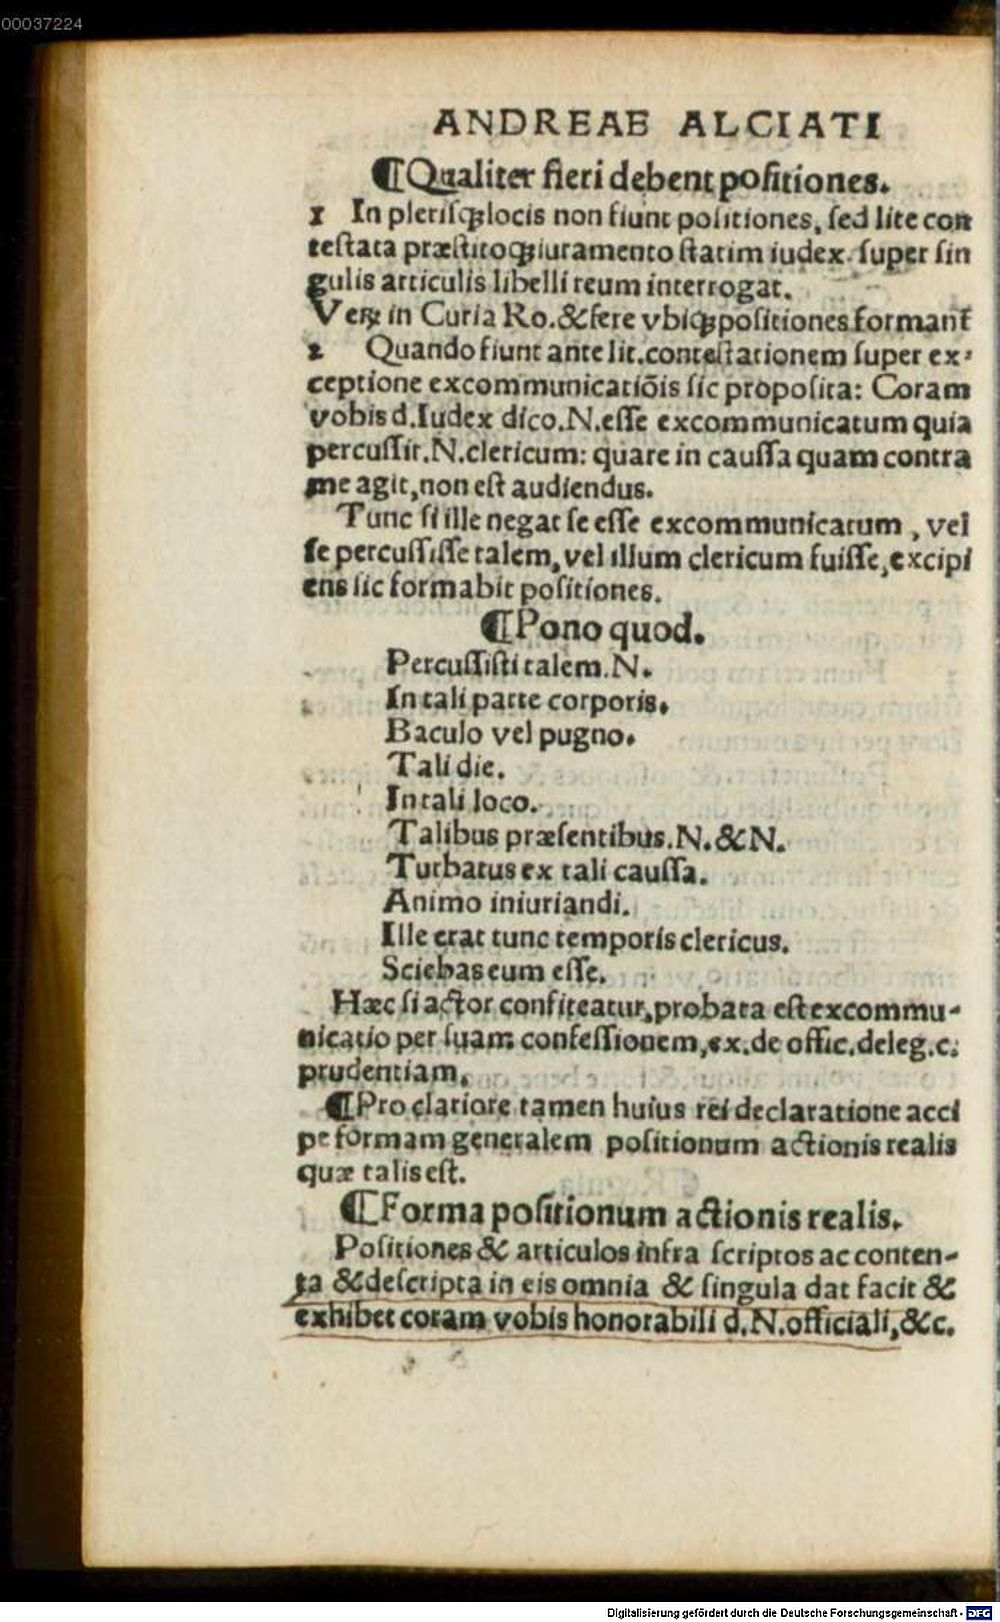 00037224
ANDREAE ALCIATI
¶Qualiter fieri debent poſitiones.
1 In pleriſqꝫ locis non fiunt poſitiones, ſed lite con
teſtata præſtitoqꝫ iuramento ſtatim iudex ſuper ſin
gulis articulis libelli reum interrogat.
Veꝝ in Curia Ro.&fere vbiqꝫ poſitiones formant̃
2 Quando fiunt ante lit.conteſtationem ſuper ex-
ceptione excommunicatiõis ſic propoſita: Coram
vobis d.Iudex dico.N.eſſe excommunicatum quia
percuſſit.N.clericum: quare in cauſſa quam contra
me agit,non eſt audiendus.
Tunc ſi ille negat ſe eſſe excommunicatum, vel
ſe percuſſiſſe talem,vel illum clericum fuiſſe,excipi
ens ſic formabit poſitiones.
¶Pono quod.
Percuſſiſti talem.N.
In tali parte corporis.
Baculo vel pugno.
Tali die.
In tali loco.
Talibus præſentibus.N.&N.
Turbatus ex tali cauſſa.
Animo iniuriandi.
Ille erat tunc temporis clericus.
Sciebas eum eſſe.
Hæc ſi actor confiteatur,probata eſt excommu-
nicatio per ſuam confeſſionem,ex.de offic.deleg.c.
prudentiam.
¶Pro clariore tamen huius rei declaratione acci
pe formam generalem poſitionum actionis realis
quæ talis eſt.
¶Forma poſitionum actionis realis.
Poſitiones & articulos infra ſcriptos ac conten-
ta &deſcripta in eis omnia & ſingula dat facit &
exhibet coram vobis honorabili d.N.officiali,&c.
Digitalisierung gefördert durch die Deutsche Forschungsgemeinschaft - DFG